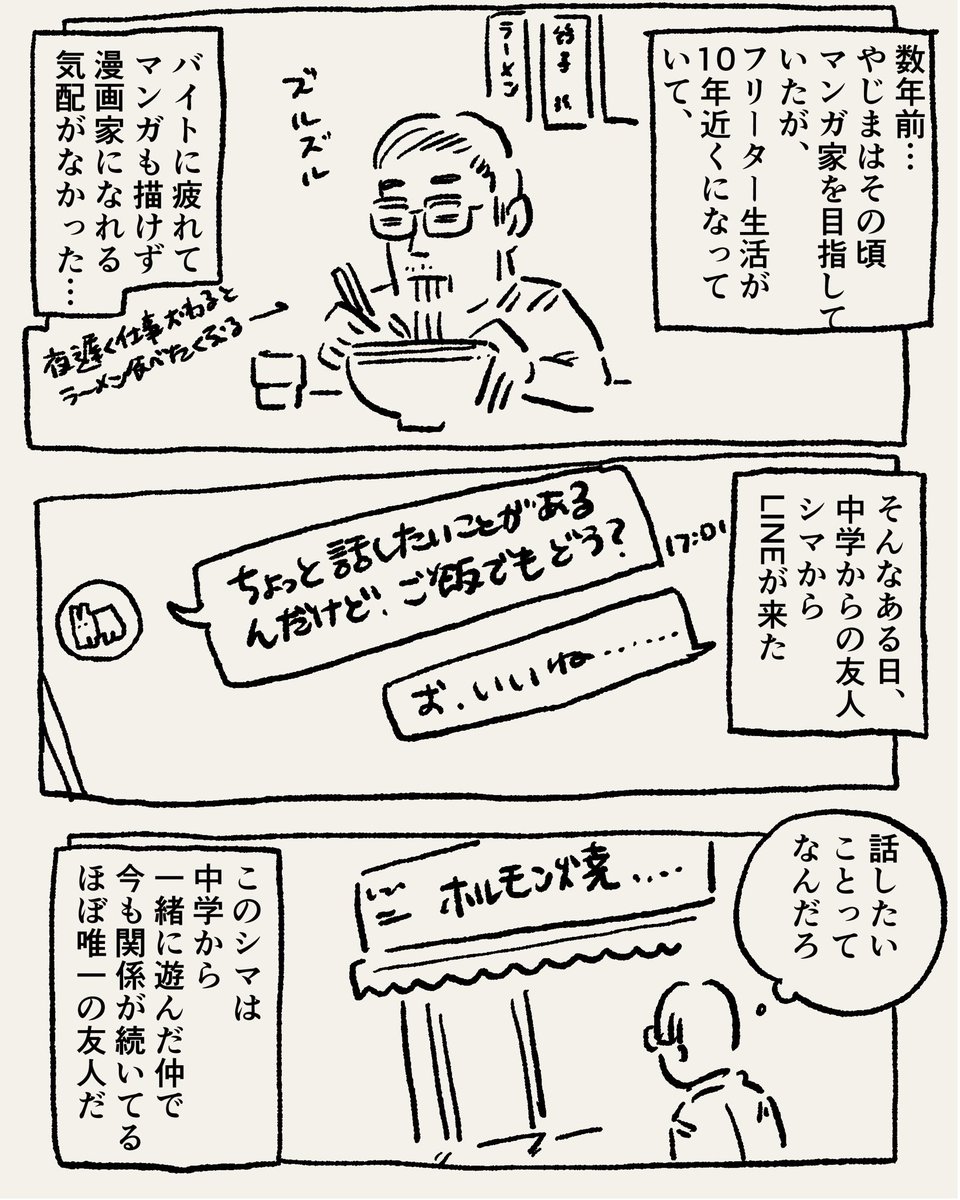 数年前…
やじまはその頃
マンガ家を目指して
いたが、
フリーター生活が
10年近くになって
いて、
ラーメン
餃子
ズルズル
バイトに疲れて
マンガも描けず
漫画家になれる
気配がなかった…
夜遅く仕事おわると
ラーメン食べたくなる
そんなある日、
中学からの友人
シマから
LINEが来た
ちょっと話したいことがある
んだけど、ご飯でもどう?
17:01
お、いいね……
話したい
ことって
なんだろ
ホルモン焼….
このシマは
中学から
一緒に遊んだ仲で
今も関係が続いてる
ほぼ唯一の友人だ